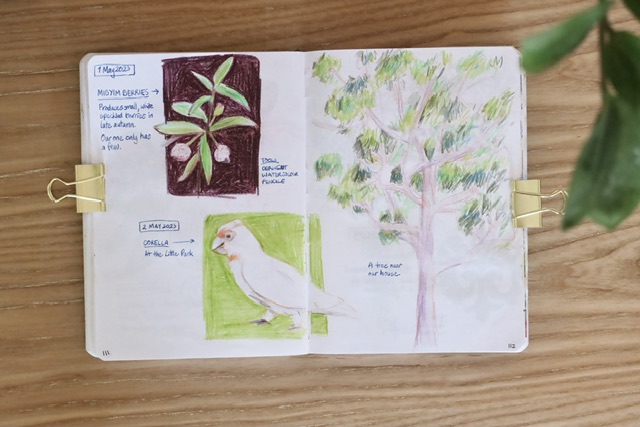 1 May 2023
MIDYIM BERRIES →
Produces small, white
speckled berries in
late autumn.
Our one only has
a few.
TOOL:
DERWENT
WATERCOLOUR
PENCILS
2 MAY 2023
CORELLA →
At the Little Park
A tree near
our house
111
112